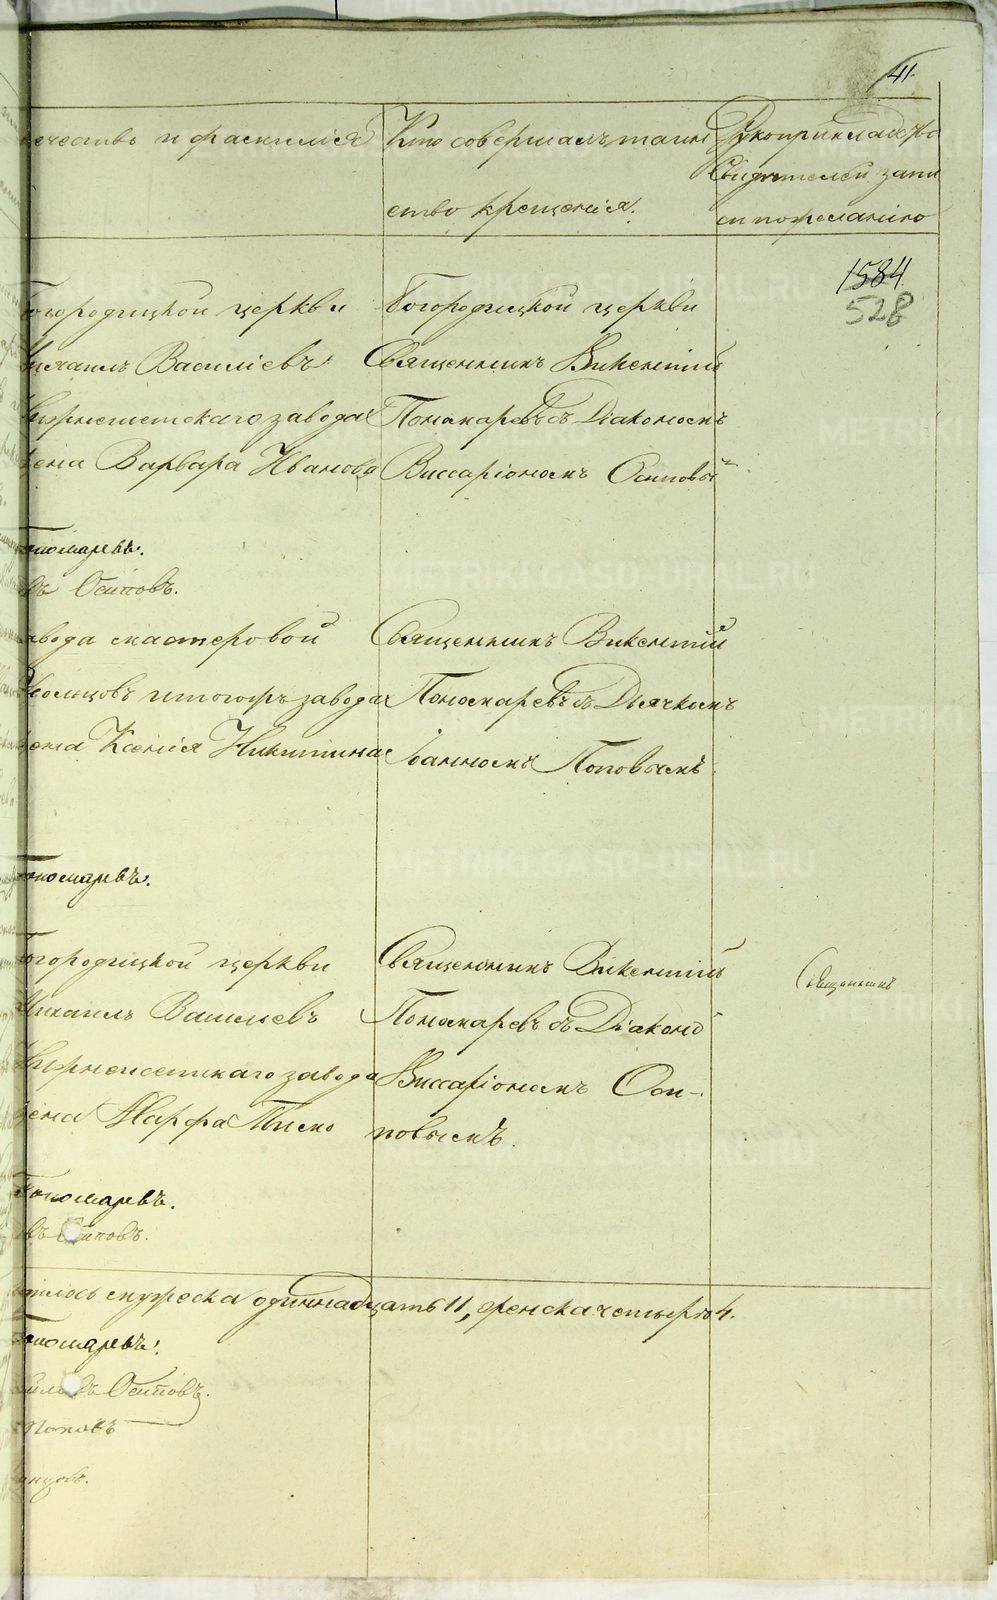 41.
ечествъ и фаммилія
Кто совершалъ таин
ство крещенія.
Рукоприкладство
свидѣтелей запи
си по желанію
1584
528
Богородицкой церкви
Михаилъ Василіевъ
Нижнеисетскаго завода
жена Варвара Иванова
Богородицкой церкви
Священникъ Викентій
Пономаревъ съ Діакономъ
Виссаріономъ Осиповы
Пономаревъ.
въ Осиповъ.
завода мастеровой
тогожъ завода
жена Ксенія Никитина
Священникъ Викентій
Пономаревъ съ Дьячкомъ
Іоанномъ Поповымъ
Пономаревъ.
Богородицкой церкви
Михаилъ Васильевъ
Нижнеисетскаго завода
жена Марфа
Священникъ Викентій
Пономаревъ съ Діаконо
Виссаріономъ Оси-
повымъ.
Священникъ
Пономаревъ.
въ Осиповъ.
дилось мужеска одиннадцать 11, женска четыре 4.
Пономаревъ.
Осиповъ.
Поповъ
METRIKI.GASO-URAL.RU